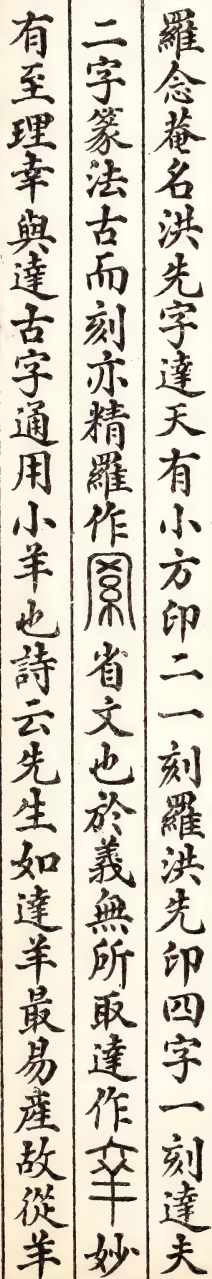 羅念菴名洪先字達天有小方印二一刻羅洪先印四字一刻達夫
二字篆法古而刻亦精羅作省文也於義無所取達作妙
有至理幸與達古字通用小羊也詩云先生如達羊最易產故從羊